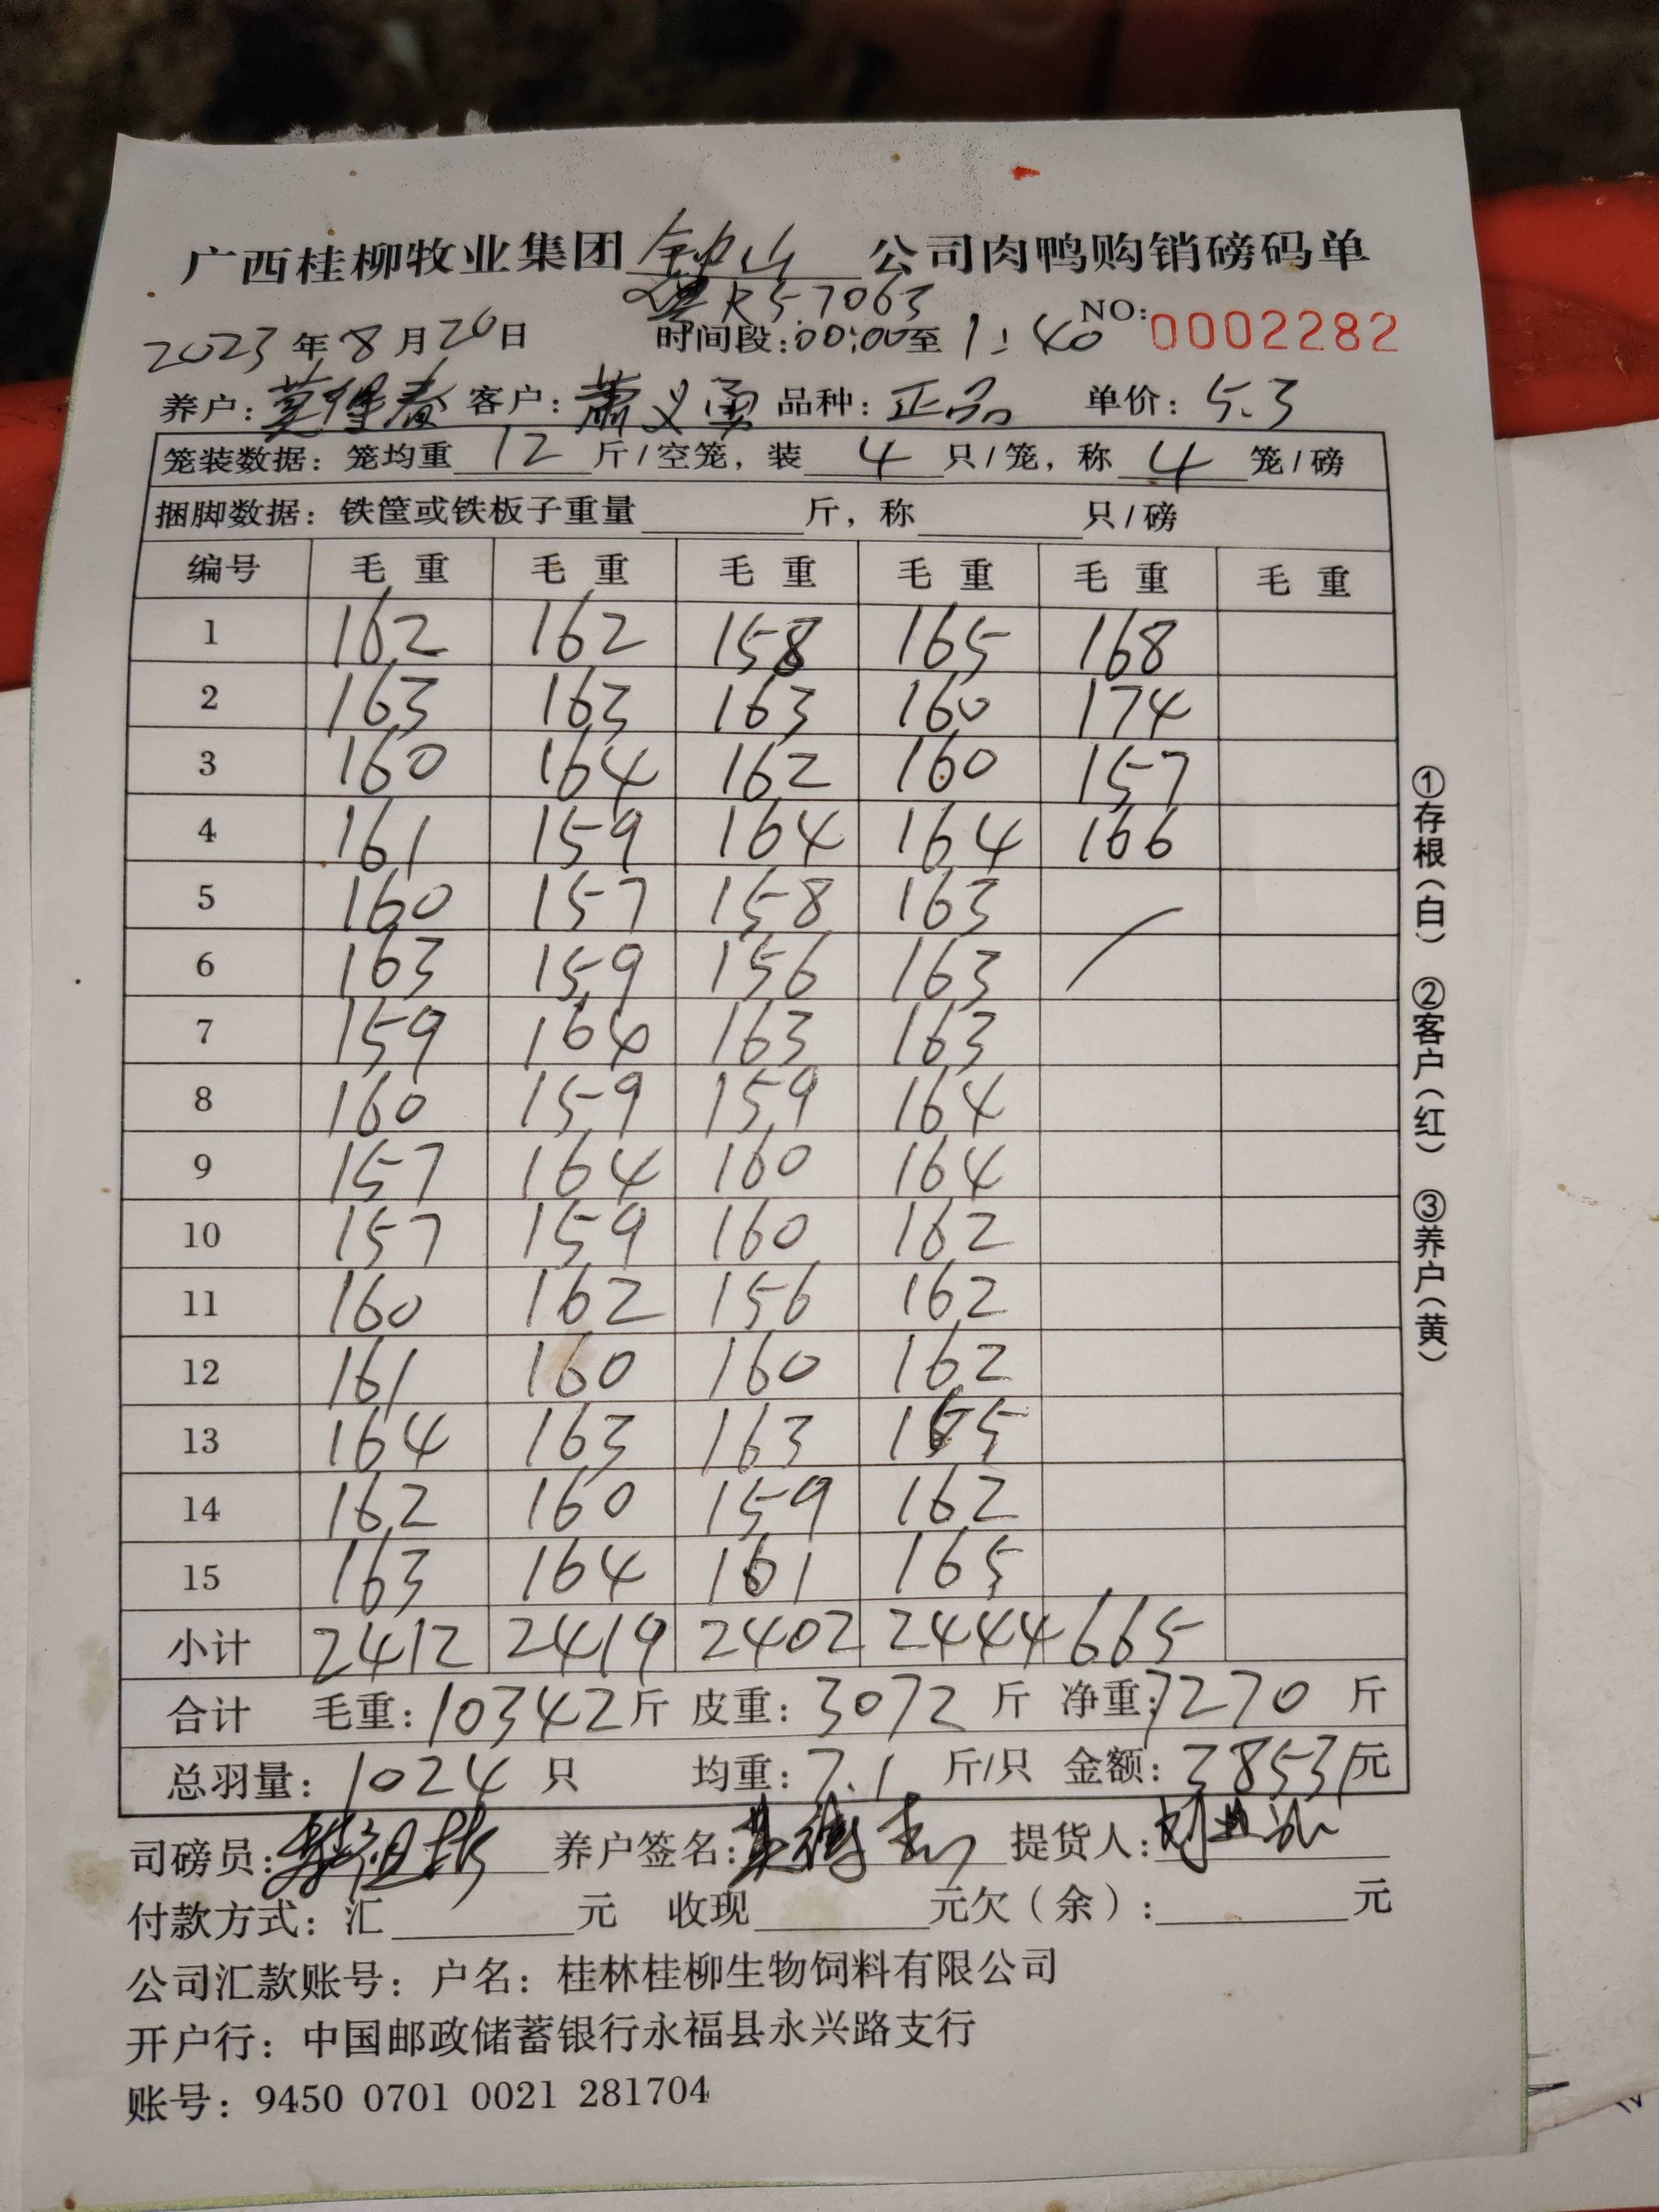 广西桂柳牧业集团 钟山 公司肉鸭购销磅码单
粤R57063
2023年8月20日 时间段:00:00至1:40 NO:0002282
养户:莫得春 客户:萧义勇 品种:正品 单价:5.3
笼装数据:笼均重 12 斤/空笼,装 4 只/笼,称 4 笼/磅
捆脚数据:铁筐或铁板子重量 斤,称 只/磅
编号 毛重 毛重 毛重 毛重 毛重 毛重
1 162 162 158 165 168
2 163 163 163 160 174
3 160 164 162 160 157
4 161 159 164 164 166
5 160 157 158 163
6 163 159 156 163
7 159 164 163 163
8 160 159 159 164
9 157 164 160 164
10 157 159 160 162
11 160 162 156 162
12 161 160 160 162
13 164 163 163 165
14 162 160 159 162
15 163 164 161 165
小计 2412 2419 2402 2444 665
合计 毛重:10342斤 皮重:3072斤 净重:7270斤
总羽量:1024只 均重:7.1斤/只 金额:38531元
司磅员: 养户签名: 提货人:
付款方式:汇 元 收现 元欠(余): 元
公司汇款账号:户名:桂林桂柳生物饲料有限公司
开户行:中国邮政储蓄银行永福县永兴路支行
账号:9450 0701 0021 281704
①存根(白) ②客户(红) ③养户(黄)